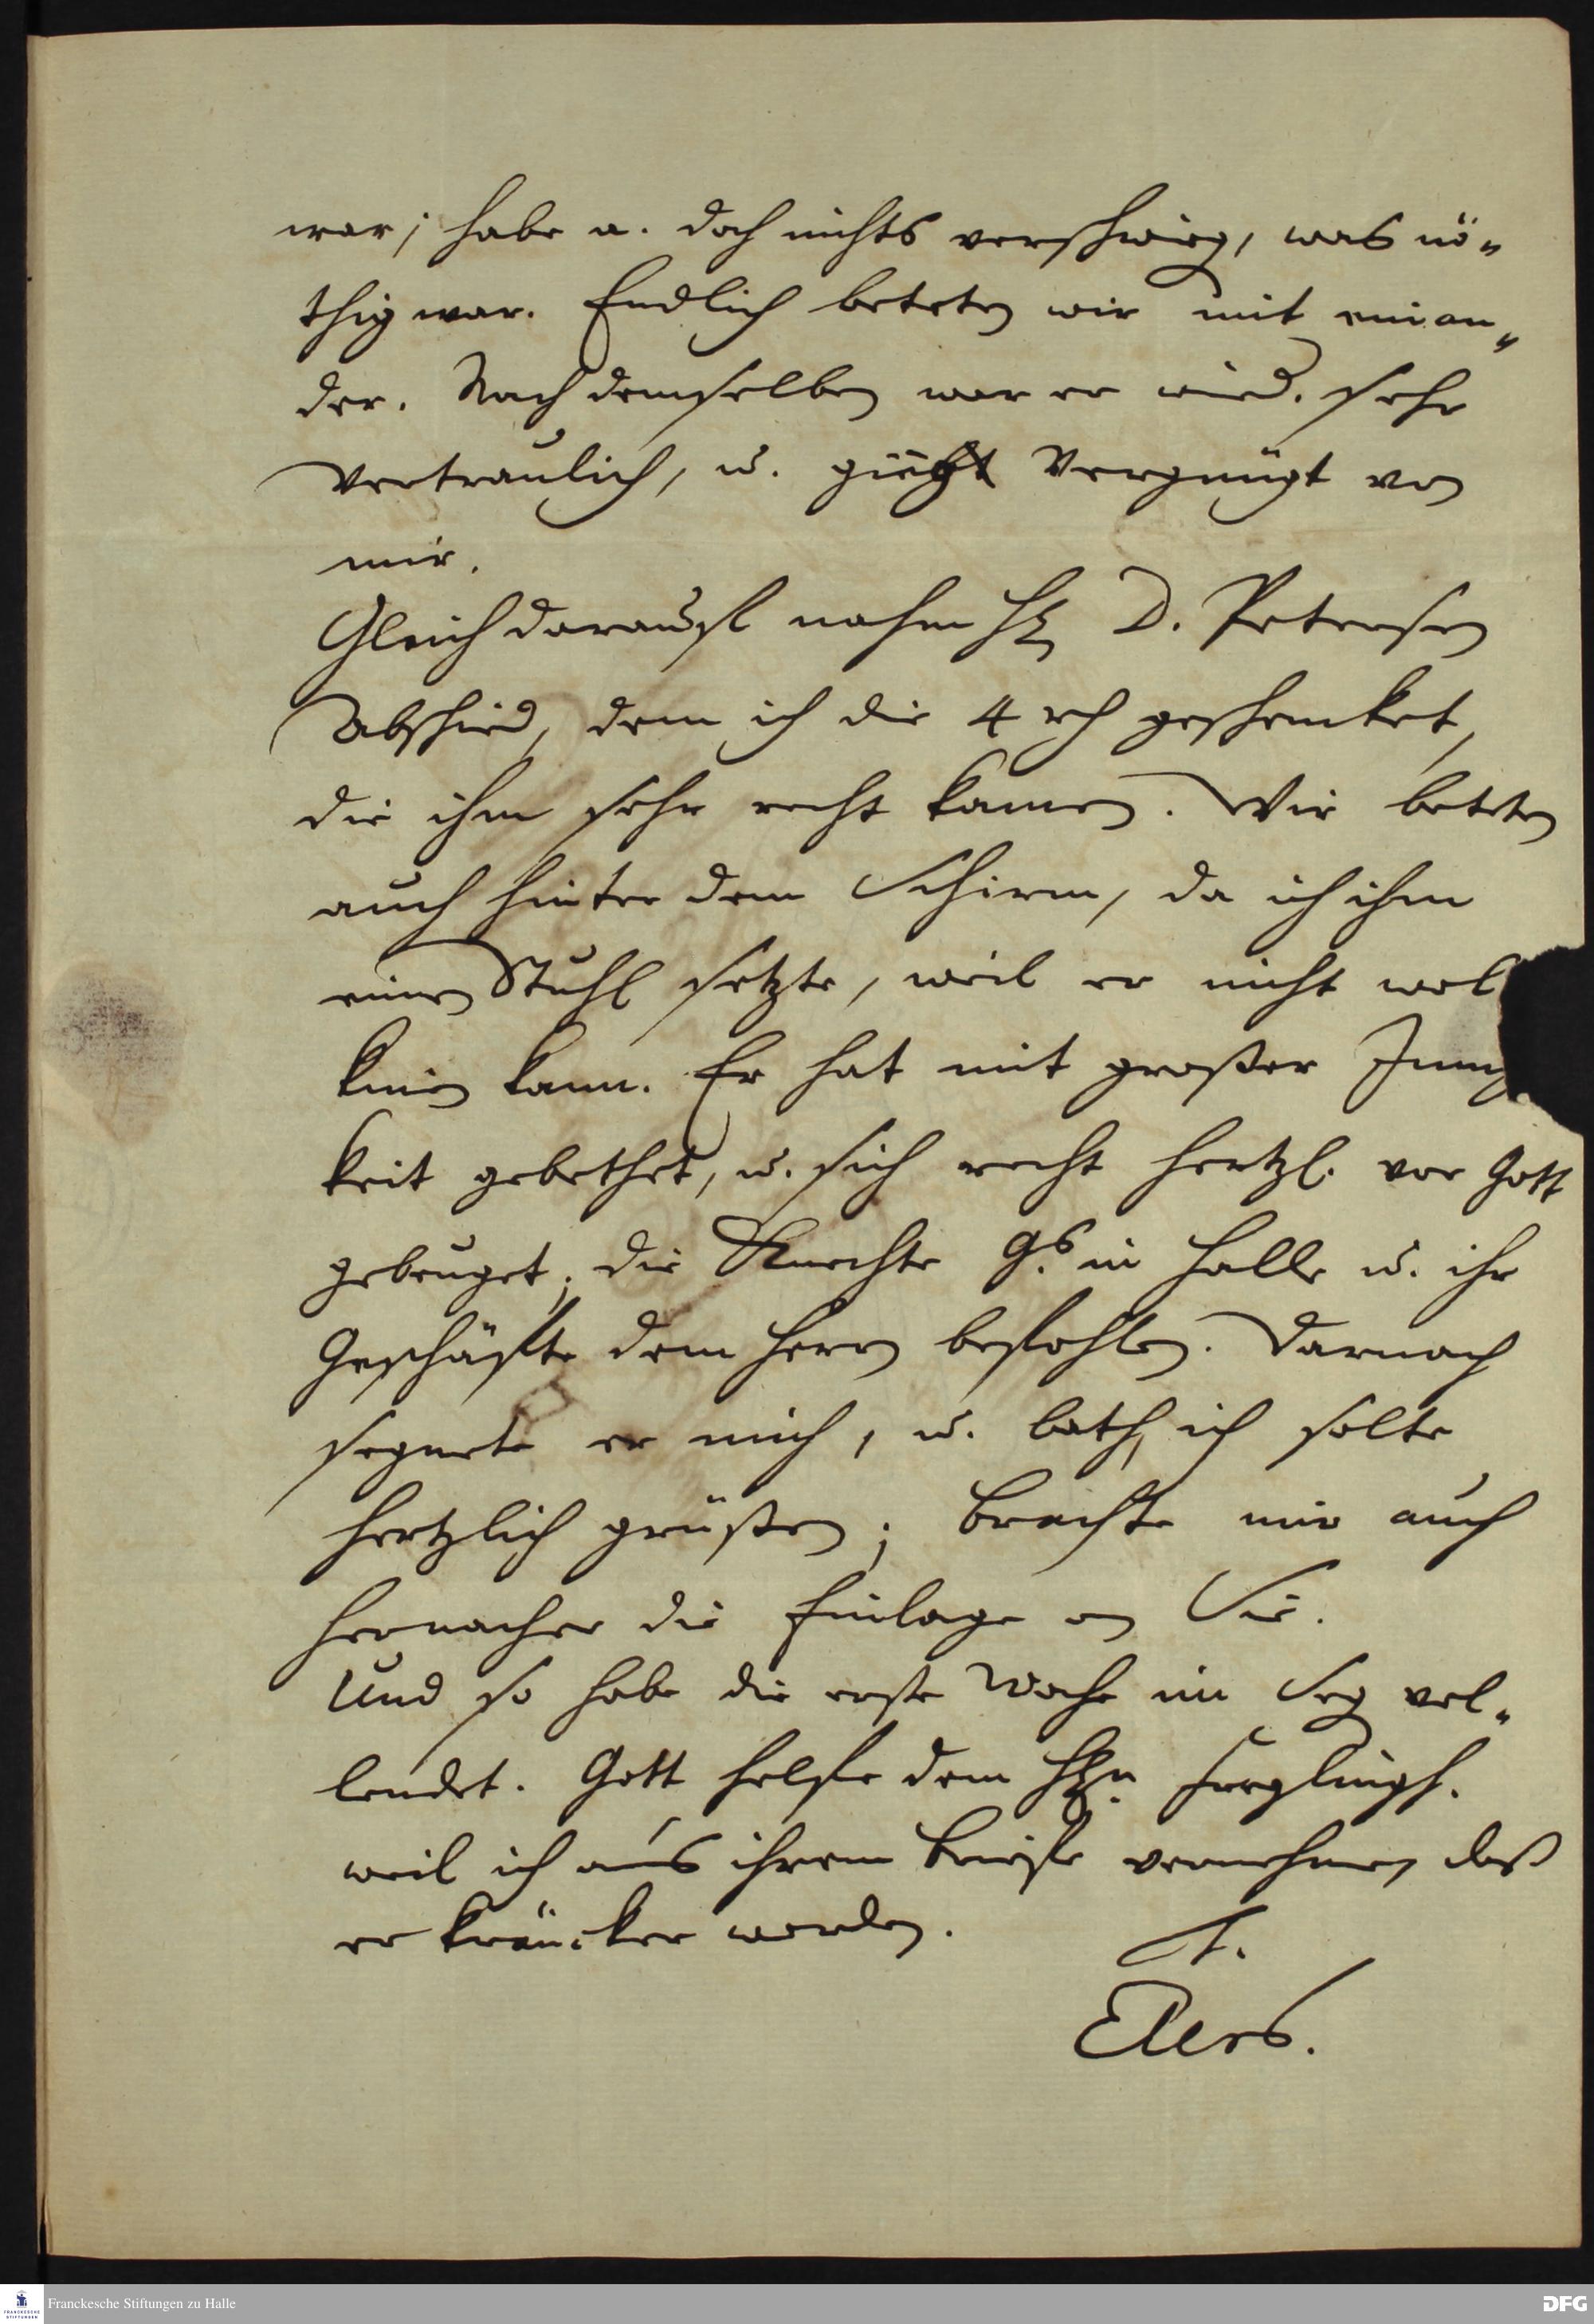 war; habe a. doch nichts verschwieg, was nö-
thig war. Endlich beteten wir mit einan-
der. Nach demselben war er wied. sehr
vertraulich, u. gieng vergnügt von
mir.
Gleich darauff nahm H. D. Petersen
Abschied, dem ich die 4 rh geschencket,
die ihm sehr recht kamen. Wir beteten
auch hinter dem Schirm, da ich ihm
einen Stuhl setzte, weil er nicht wol
knien kann. Er hat mit großer Innig
keit gebethet, u. sich recht hertzl. vor Gott
gebeuget; die Knechte G.s in Halle u. ihr
Geschäffte dem Herrn befohlen. Darnach
segnete er mich, u. bath, ich solte
hertzlich grüßen; brachte mir auch
hernacher die Einlage an Sie.
Und so habe die erste Woche im Seg vol-
lendet. Gott helffe dem H.
weil ich aus ihrem Brieffe vernehmen, daß
er kräncker worden.
Elers.
Franckesche Stiftungen zu Halle
FRANCKESCHE STIFTUNGEN
DFG